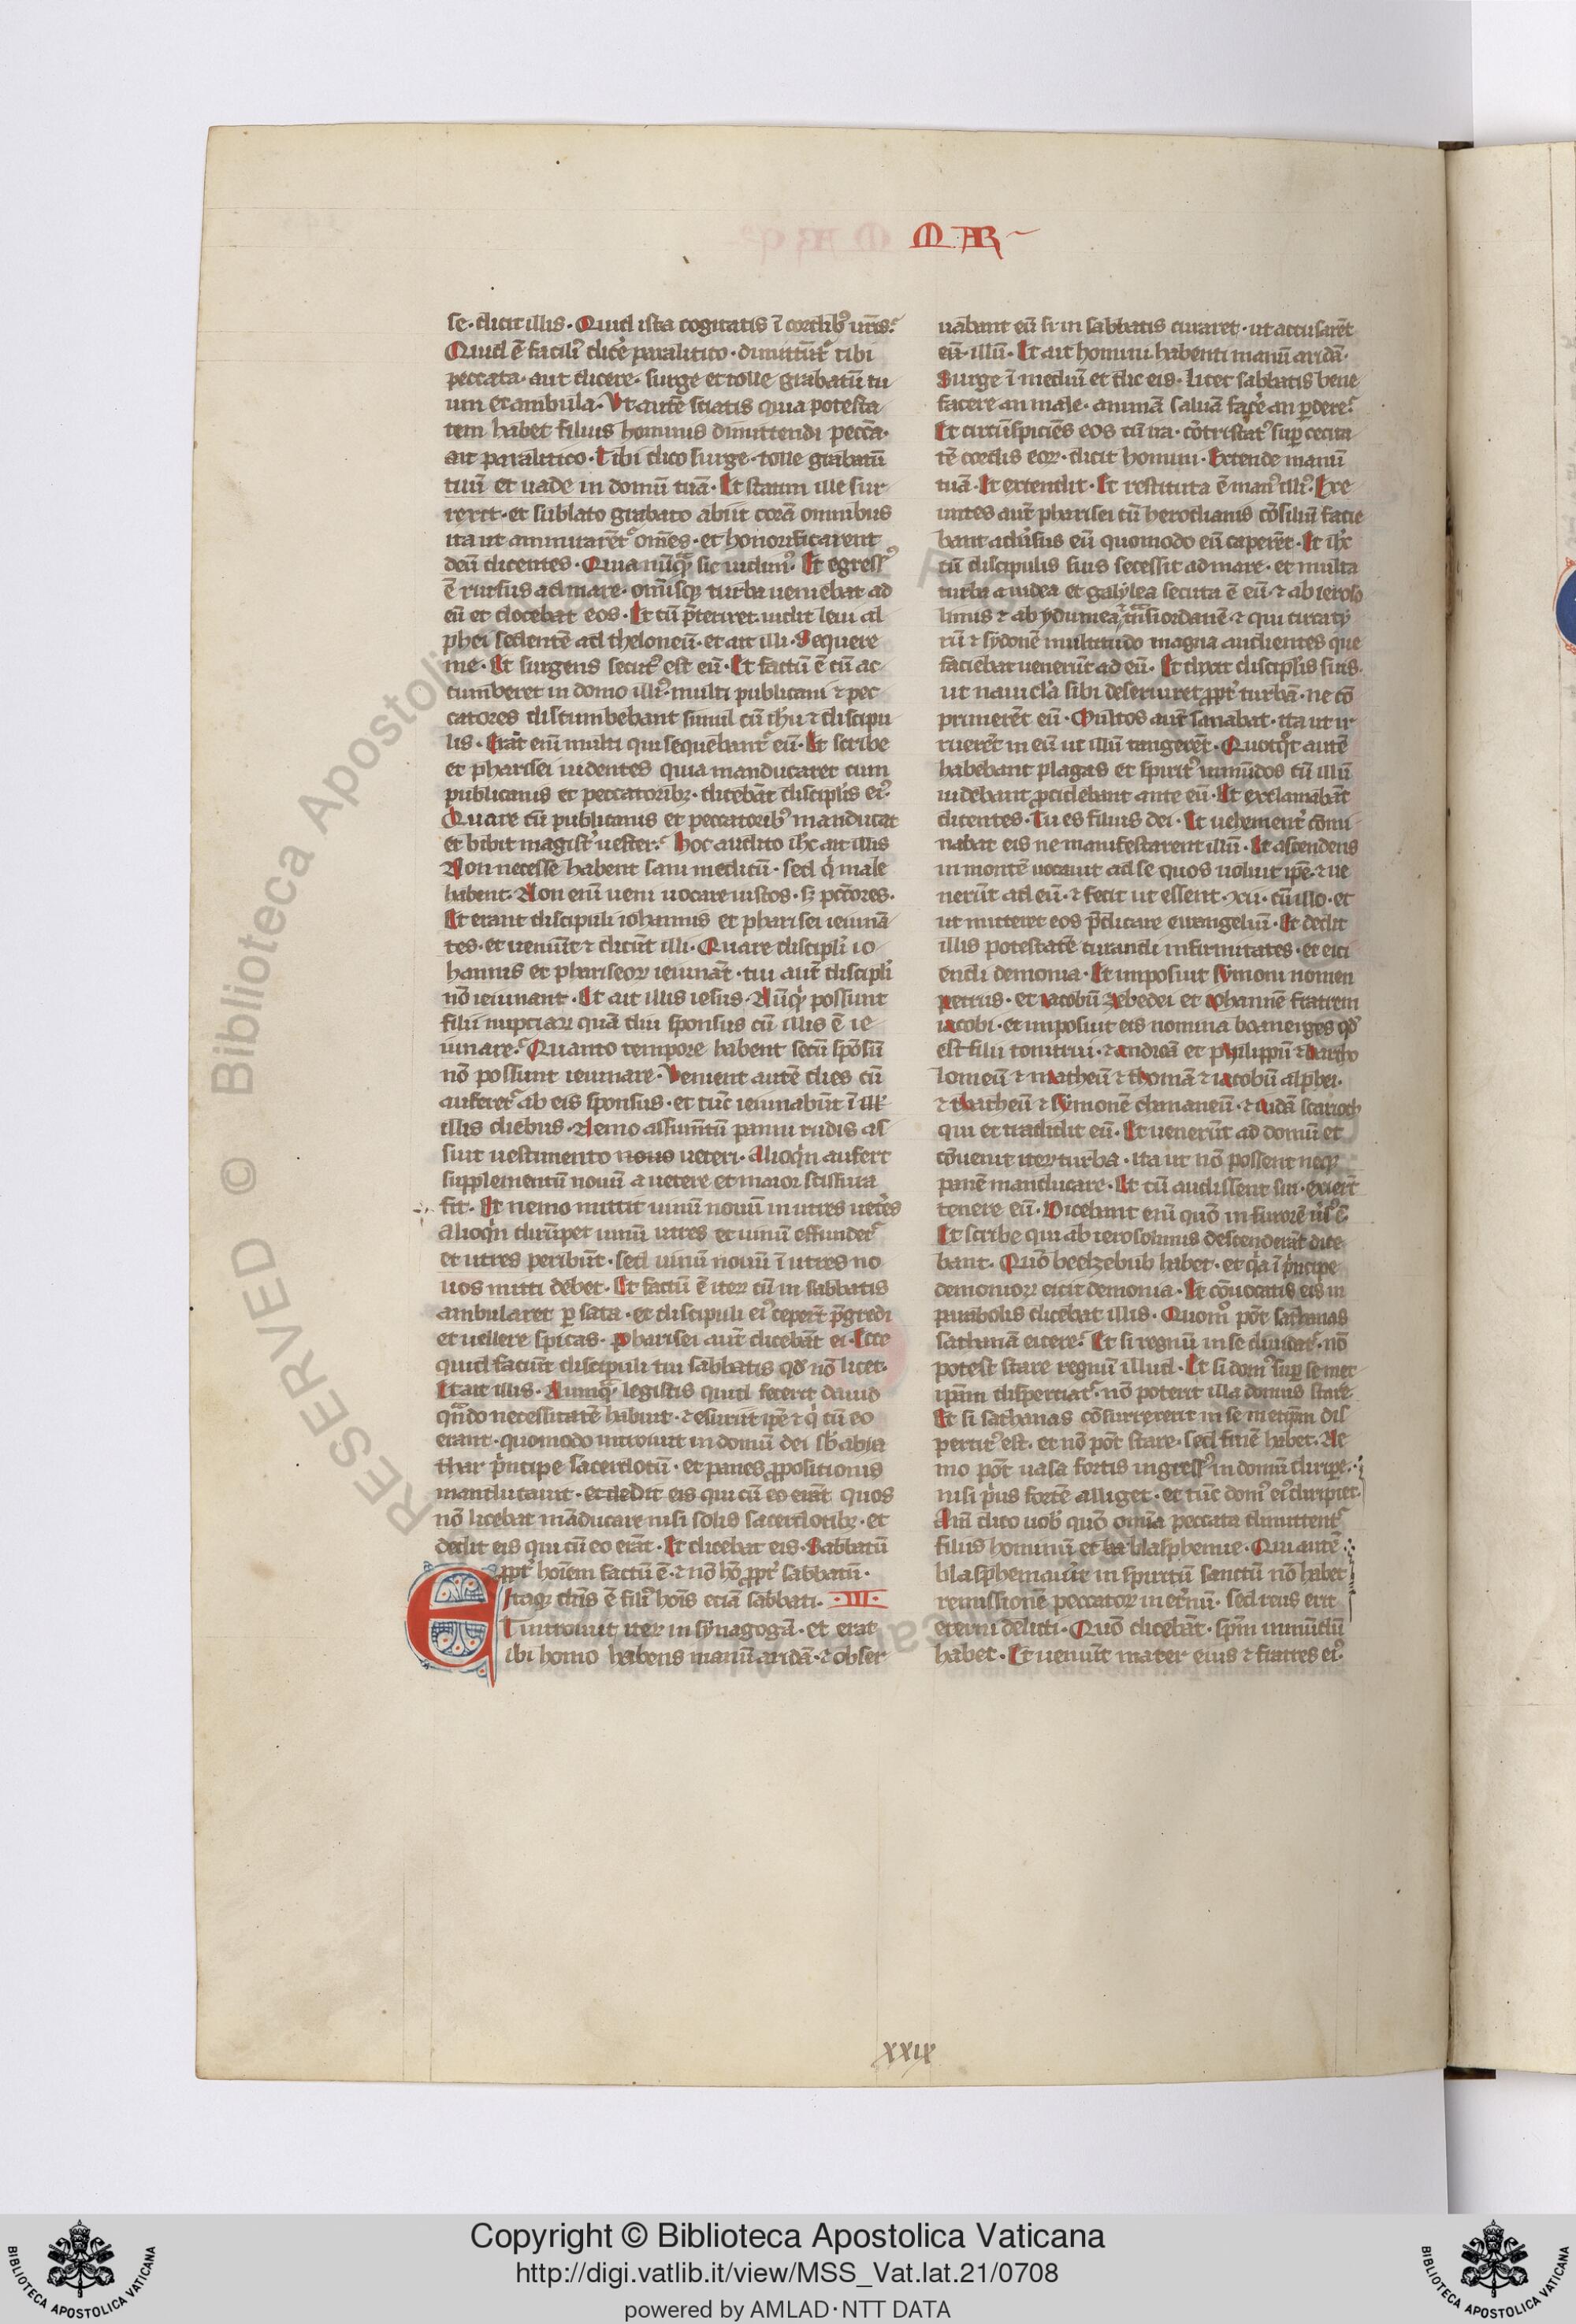 MAR
se. dicit illis. Quid ista cogitatis ī cordib9 ūris?
Quid ē facili9 dicē paralitico. dimittūt̄ tibi
peccata. aut dicere. surge et tolle grabatū tu
um et ambula. Vt autē sciatis quia potesta
tem habet filius hominis dimittendi peccā.
ait paralitico. Tibi dico surge. tolle grabatū
tuū et uade in domū tuā. Et statim ille sur
rexit. et sublato grabato abiit corā omnibus
ita ut ammirarēt̄ om̄es. et honorificarent
deū dicentes. Quia nūq̄ sic uidim9. Et egress9
ē rursus ad mare. omīsq; turba ueniebat ad
eū et docebat eos. Et cū p̄teriret. uidit leui al
phei sedentē ad theloneū. et ait illi. Sequere
me. Et surgens secut9 est eū. Et factū ē cū ac
cumberet in domo illi9. multi publicani ⁊ pec
catores discumbebant simul cū ih̄u ⁊ discipu
lis. Erāt enī multi qui sequebant̄ eū. Et scribe
et pharisei uidentes quia manducaret cum
publicanis et peccatorib;. dicebāt discipl̄is ei9.
Quare cū publicanis et peccatorib9 manducat
et bibit magist̄ uester? hoc audito ih̄c ait illis
Non necesse habent sani medicū. sed q̇ male
habent. Non enī ueni uocare iustos. s; pct̄ores.
Et erant discipuli iohannis et pharisei ieiunā
tes. et ueniūt ⁊ dicūt illi. Quare discipl̄i io
hannis et phariseoꝝ ieiunāt. tui aut̄ discipl̄i
nō ieiunant. Et ait illis iesus. Nūq̇d possunt
filii nuptiaꝝ quā diu sponsus cū illis ē ie
iunare? Quanto tempore habent secū spōsū
nō possunt ieiunare. Venient autē dies cū
auferet̄ ab eis sponsus. et tūc ieiunabūt ī ill̄
illis diebus. Nemo assumtū panni rudis as
suit uestimento nouo ueteri. alioq̇n aufert
supplementū nouū a uetere et maior scissura
fit. Et nemo mittit uinū nouū in utres uetēs
alioq̇n dirūpet uinū utres et uinū effundet̄
et utres peribūt. sed uinū nouū ī utres no
uos mitti debet. Et factū ē iteꝝ cū in sabbatis
ambularet ꝑ sata. et discipuli ei9 ceperūt p̄gredi
et uellere spicas. Pharisei aut̄ dicebāt ei. Ecce
quid faciūt discipuli tui sabbatis qd̄ nō licet.
Et ait illis. Numq̄ legistis quid fecerit dauid
qn̄do necessitatē habuit. ⁊ esuriit ip̄e ⁊ q̇ cū eo
erant. quomodo introiuit in domū dei sb̄ abia
thar p̄ncipe sacerdotū. et panes ꝓpositionis
manducauit. et dedit eis qui cū eo erāt quos
nō licebat māducare nisi solis sacerdotib;. et
dedit eis qui cū eo erāt. Et dicebat eis. Sabbatū
ꝓpt̄ hoīem factū ē. ⁊ nō hō ꝓpt̄ sabbatū.
Itaq; dn̄s ē fili9 hoīs etiā sabbati. .III.
Et introiuit iteꝝ in synagogā. et erat
ibi homo habens manū aridā. ⁊ obser
uabant eū si in sabbatis curaret. ut accusarēt
eū. illū. Et ait homini habenti manū aridā.
Surge ī mediū et dic eis. licet sabbatis bene
facere an male. animā saluā facē an ꝑdere?
Et circūspiciēs eos cū ira. cōtristat9 suꝑ cecita
tē cordis eoꝝ. dicit homini. Extende manū
tuā. Et extendit. Et restituta ē man9 illi9. Exe
untes aut̄ pharisei cū herodianis cōsiliū facie
bant adūsus eū quomodo eū caperēt. Et ih̄c
cū discipulis suis secessit ad mare. et multa
turba a iudea et galylea secuta ē eū. ⁊ ab ieroso
limis ⁊ ab ydumea ⁊ tāsiordanē. ⁊ qui circa ty
rū ⁊ sydonē multitudo magna audientes que
faciebat uenerūt ad eū. Et dixit discipl̄is suis.
ut nauicl̄a sibi deseruiret ꝓpt̄ turbā. ne cō
primerēt eū. Multos aut̄ sanabat. ita ut ir
ruerēt in eū ut illū tangerēt. Quotq̇t autē
habebant plagas et spirit9 inmūdos cū illū
uidebant ꝓcidebant ante eū. Et exclamabāt
dicentes. Tu es filius dei. Et uehement̄ cōmi
nabat̄ eis ne manifestarent illū. Et ascendens
in montē uocauit ad se quos uoluit ip̄e. ⁊ ue
nerūt ad eū. ⁊ fecit ut essent .xii. cū illo. et
ut mitteret eos p̄dicare euangeliū. Et dedit
illis potestatē curandi infirmitates. et eici
endi demonia. Et imposuit symoni nomen
petrus. et iacobū zebedei et iohannē fratrem
iacobi. et imposuit eis nomina boanerges qd̄
est filii tonitrui. ⁊ andreā et philippū ⁊ bartho
lomeū ⁊ matheū ⁊ thomā ⁊ iacobū alphei.
⁊ thatheū ⁊ symonē chananeū. ⁊ iudā scarioth
qui et tradidit eū. Et uenerūt ad domū et
cōuenit iteꝝ turba. ita ut nō possent neq;
panē manducare. Et cū audissent sui. exierūt
tenere eū. Dicebant enī quō in furorē ūs9 ē.
Et scribe qui ab ierosolimis descenderāt dice
bant. Quō beelzebub habet. et q̇a ī p̄ncipe
demonioꝝ eicit demonia. Et cōuocatis eis in
parabolis dicebat illis. Quom̊ pōt sathanas
sathanā eicere? Et si regnū in se diuidat̄. nō
potest stare regnū illud. Et si dom9 suꝑ se met
ipsam disperciat̄. nō poterit illa domus stare
Et si sathanas cōsurrexerit in se metip̄m dis
pertit9 est. et nō pōt stare. sed finē habet. Ne
mo pōt uasa fortis ingress9 in domū diripe.
nisi p̄us fortē alliget. et tūc dom9 ei9 diripiet.
Am̄ dico uob̄ quō om̄ia peccata dimittent̄
filiis hominū et blasphemie. Qui autē
blasphemauīt in spiritū sanctū nō habet
remissionē peccatoꝝ in et̄nū. sed reus erit
eterni delicti. Quō dicebāt. sp̄m inmūdū
habet. Et ueniūt mater eius ⁊ fratres ei9.
xxix
RESERVED © Biblioteca Apostolica
Copyright © Biblioteca Apostolica Vaticana
http://digi.vatlib.it/view/MSS_Vat.lat.21/0708
powered by AMLAD·NTT DATA
BIBLIOTECA APOSTOLICA VATICANA
BIBLIOTECA APOSTOLICA VATICANA